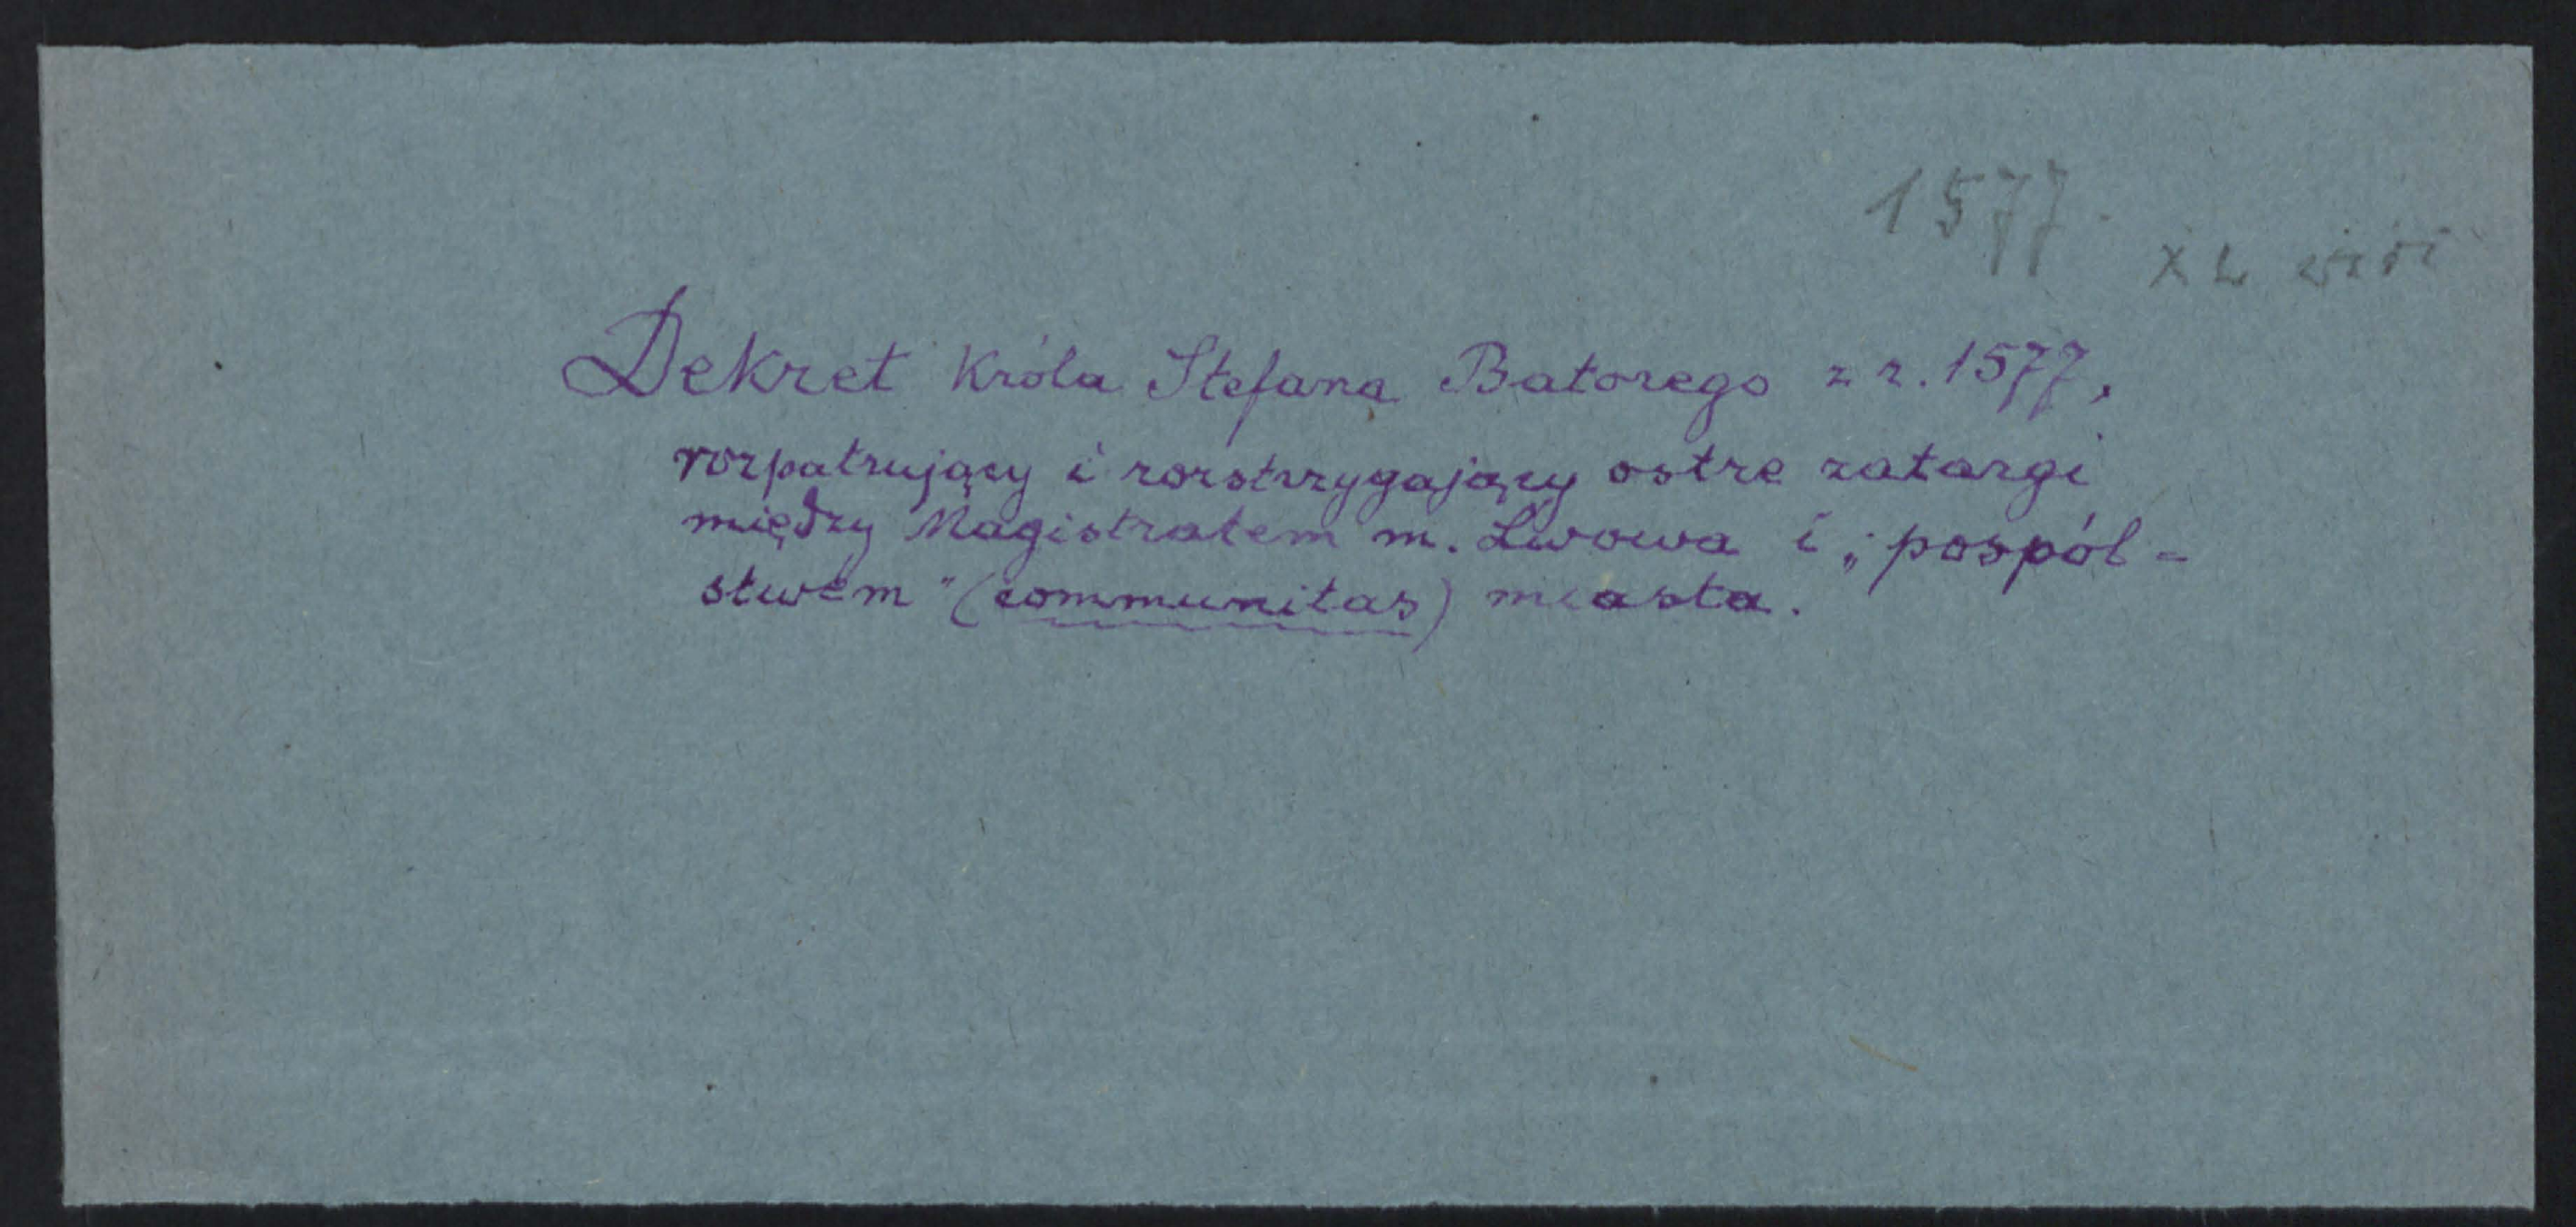 1577.
XL viri
Dekret Króla Stefana Batorego z r. 1577,
rozpatrujący i rozstrzygający ostre zatargi
między Magistratem m. Lwowa i „pospól-
stwem" (communitas) miasta.